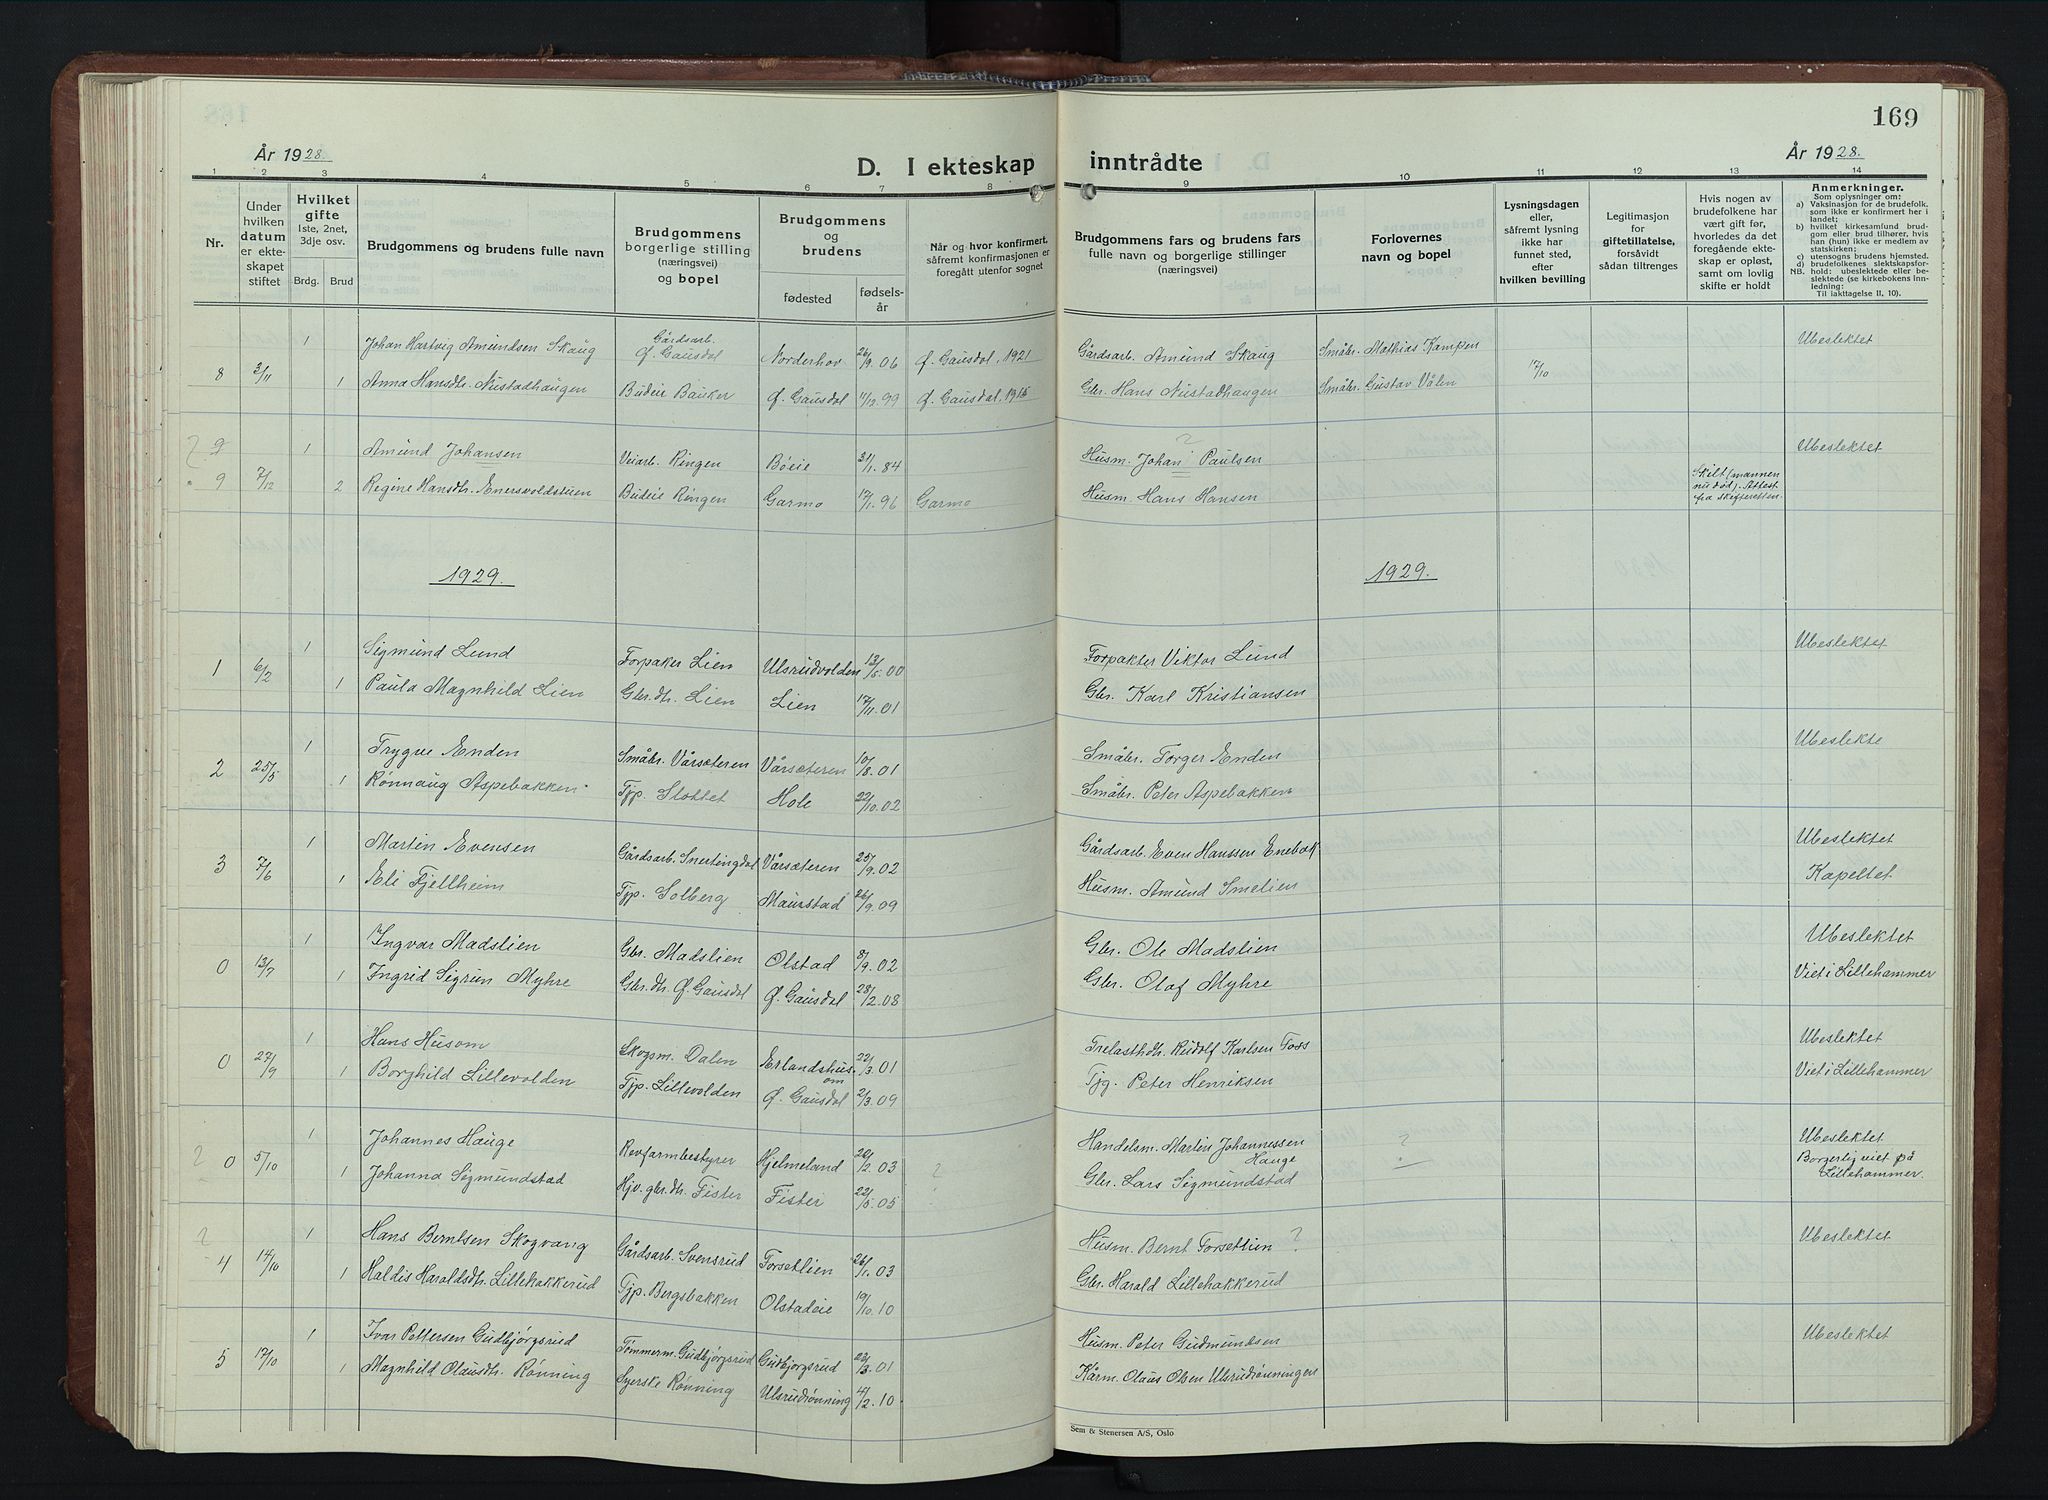 169
År 1928.
D. I ekteskap inntrådte
År 1928.
1 2 3 4 5 6 7 8 9 10 11 12 13 14
Nr.
Under hvilken datum er ekteskapet stiftet
Hvilket gifte 1ste, 2net, 3dje osv.
Brdg. Brud
Brudgommens og brudens fulle navn
Brudgommens og brudens borgerlige stilling (næringsvei) og bopel
Brudgommens og brudens
fødested
fødselsår
Når og hvor konfirmert, såfremt konfirmasjonen er foregått utenfor sognet
Brudgommens fars og brudens fars fulle navn og borgerlige stillinger (næringsvei)
Forlovernes navn og bopel
Lysningsdagen eller, såfremt lysning ikke har funnet sted, efter hvilken bevilling
Legitimasjon for giftetillatelse, forsåvidt sådan tiltrenges
Hvis nogen av brudefolkene har vært gift før, hvorledes da det foregående ekteskap er opløst, samt om lovlig skifte er holdt
Anmerkninger.
Som oplysninger om:
a) Vaksinasjon for de brudefolk, som ikke er konfirmert her i landet;
b) hvilket kirkesamfund brudgom eller brud tilhører, hvis han (hun) ikke er medlem av statskirken;
c) utensogns brudens hjemsted.
d) brudefolkenes slektskapsforhold: ubeslektede eller beslektede (se kirkebokens innledning:
NB.
Til iakttagelse II, 10).
1 Johan Hartvig Amundsen Skaug Gårdsarb. Ø. Gausdal Norderhov 26/9.06 Ø. Gausdal, 1921 Gårdsarb. Amund Skaug Småbr. Mathias Kampen Ubeslektet
8 3/11 1 Anna Hansdh. Nustadhaugen Budeie Bauker Ø. Gausdal 11/12.99 Ø. Gausdal, 1915 Gbr. Hans Nustadhaugen Småbr. Gustav Vålen 17/10
? 9 1 Amund Johansen Veiarb. Ringen Bøeie 31/1.84 Husm. Johan ? Paulsen Ubeslektet
9 7/12 2 Regine Hansdh. Enersvoldstuen Budeie Ringen Garmo 17/1.96 Garmo Husm. Hans Hansen Skilt (mannen nu død). Attest fra skifteretten.
1929. 1929.
1 Sigmund Lund Forpakter Lien Ulsrudvolden 13/5.00 Forpakter Viktor Lund Ubeslektet
1 6/2 1 Paula Magnhild Lien Gbr.dh. Lien Lien 17/11.01 Gbr. Karl Kristiansen
1 Trygve Enden Småbr. Vårsæteren Vårsæteren 10/8.01 Småbr. Torger Enden Ubeslekte
2 25/5 1 Rønnaug Aspebakken Tjp. Slottet Hole 22/10.02 Småbr. Peter Aspebakken
1 Martin Evensen Gårdsarb. Snertingdal Vårsæteren 25/9.02 Gårdsarb. Even Hanssen Enebak Ubeslektet
3 7/6 1 Eli Fjellheim Tjp. Solberg Maurstad 26/9.09 Husm. Amund Smelien Kapellet
1 Ingvar Madslien Gbr. Madslien Olstad 8/9.02 Gbr. Ole Madslien Ubeslektet
0 13/7 1 Ingrid Sigrun Myhre Gbr.dh. Ø. Gausdal Ø. Gausdal 28/2.08 Gbr. Olaf Myhre Viet i Lillehammer
1 Hans Husom Skogsm. Dalen Erlandshusom 22/3.01 Trelasthdh. Rudolf Karlsen Foss Ubeslektet
0 27/9 1 Borghild Lillevolden Tjp. Lillevolden Ø. Gausdal 2/3.09 Tjg. Peter Henriksen Viet i Lillehammer
1 Johannes Hauge Revfarmbestyrer Hjelmeland 26/2.03 ? Handelsm. Martin Johannessen Hauge ? Ubeslektet
? 0 5/10 1 Johanna Sigmundstad Hjv. gbr.dh. Fister Fister 22/5.05 Gbr. Lars Sigmundstad Borgerlig viet på Lillehammer.
? 1 Hans Berntsen Skogvang Gårdsarb. Svensrud Forsetlien 26/1.03 Husm. Bernt Forsetlien ? Ubeslektet
4 14/10 1 Haldis Haraldsdh. Lillehakkerud Tjp. Bergsbakken Olstadeie 19/10.10 Gbr. Harald Lillehakkerud
1 Ivar Pettersen Gudbjørgsrud Tømmerm. Gudbjørgsrud Gudbjørgsrud 23/3.01 Husm. Peter Gudmundsen Ubeslektet
5 17/10 1 Magnhild Olausdh. Rønning Syerske Rønning Ulsrudrønning 4/2.10 Kårm. Olaus Olsen Ulsrudrønningen
Sem & Stenersen A/S, Oslo